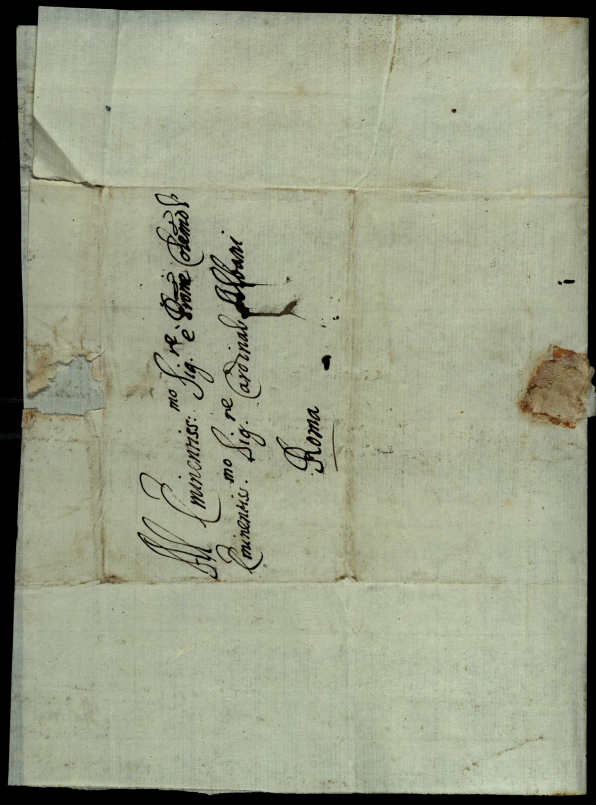 All Eminentiss:mo Sig.re e Prone Colemo
Eminentis.mo Sig.re Cardinal Albani
Roma